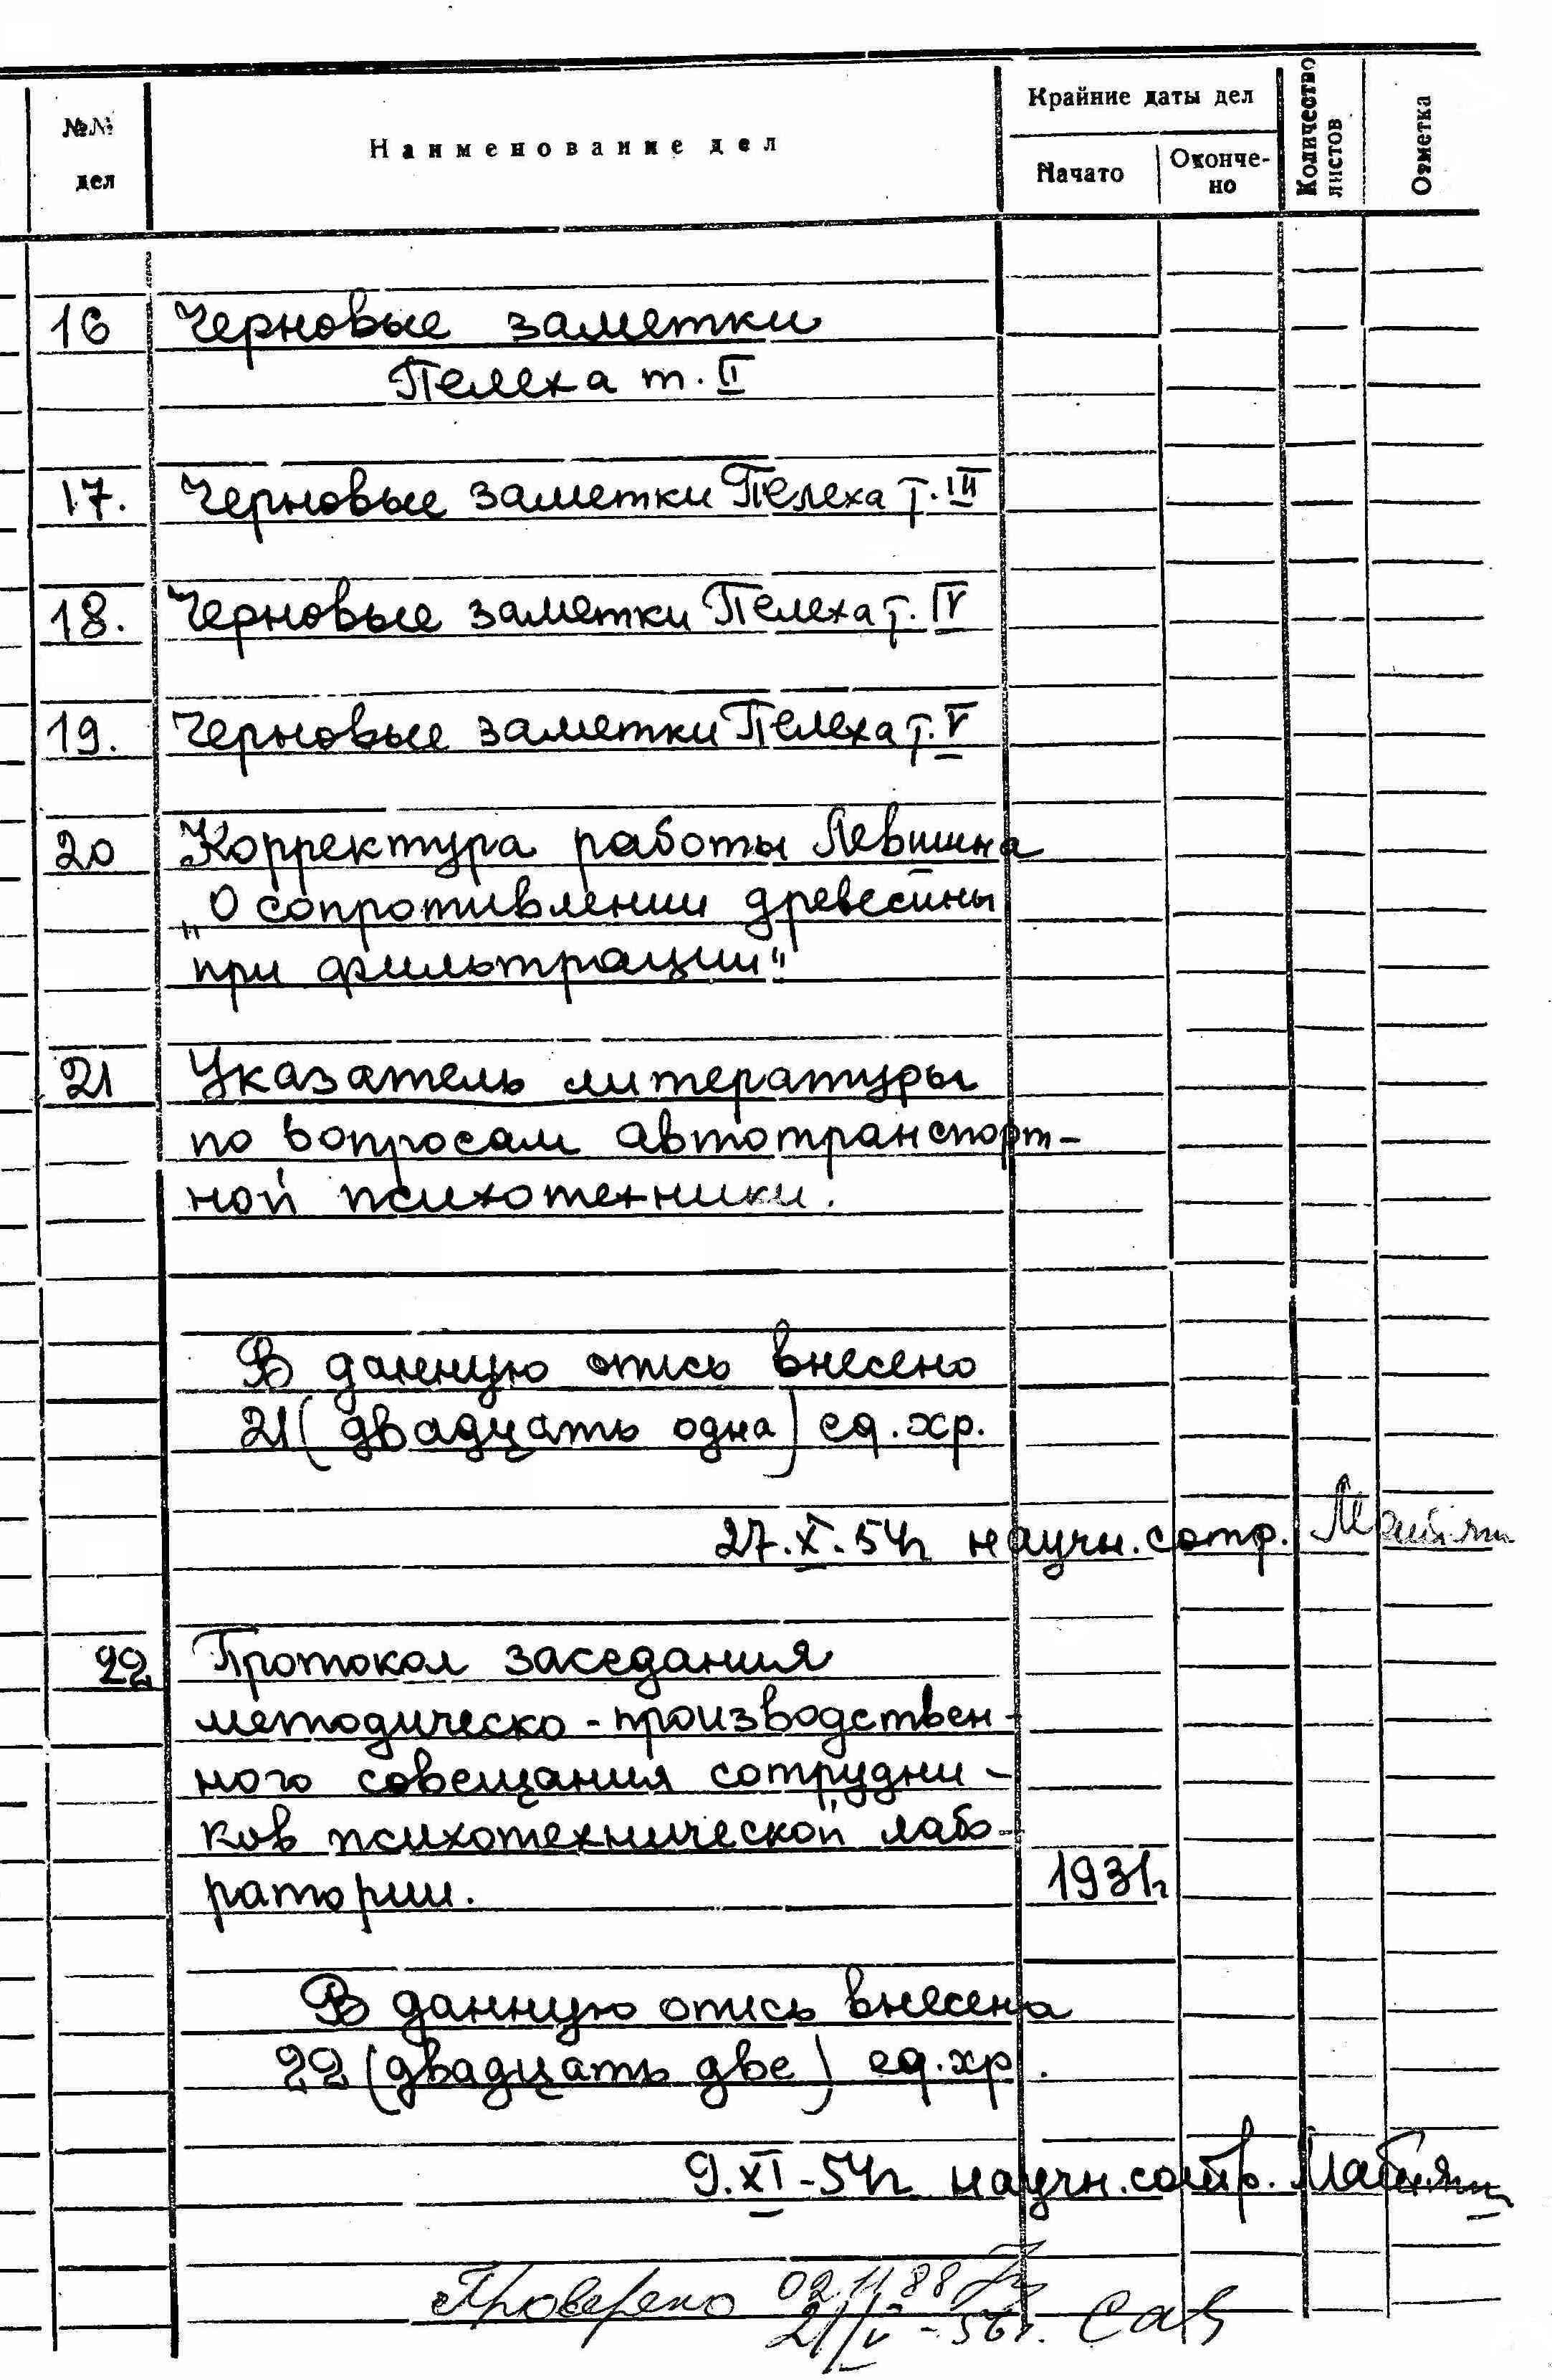 №№ дел
Наименование дел
Крайние даты дел
Начато
Окончено
Количество листов
Отметка
16 Черновые заметки
Пелеха т. II
17. Черновые заметки Пелеха т. III
18. Черновые заметки Пелеха т. IV
19. Черновые заметки Пелеха т. V
20 Корректура работы Левшина
„О сопротивлении древесины
при фильтрации"
21 Указатель литературы
по вопросам автотранспорт-
ной психотехники.
В данную опись внесено
21 (двадцать одна) ед. хр.
27.X.54г научн. сотр.
22 Протокол заседания
методическо-производствен-
ного совещания сотрудни-
ков психотехнической лабо-
ратории. 1931г
В данную опись внесена
22 (двадцать две) ед. хр.
9.XI-54г научн. сотр.
Проверено 02 11 88
21/V-56г.